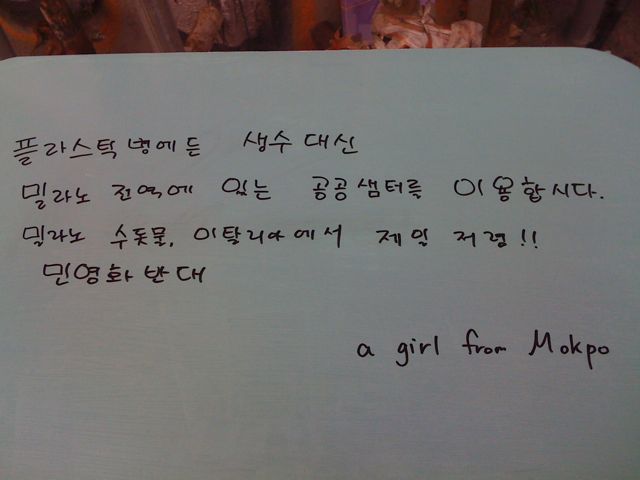 플라스틱 병에든 생수 대신
밀라노 전역에 있는 공공샘터를 이용합시다.
밀라노 수돗물, 이탈리아에서 제일 저렴!!
민영화 반대
a girl from Mokpo